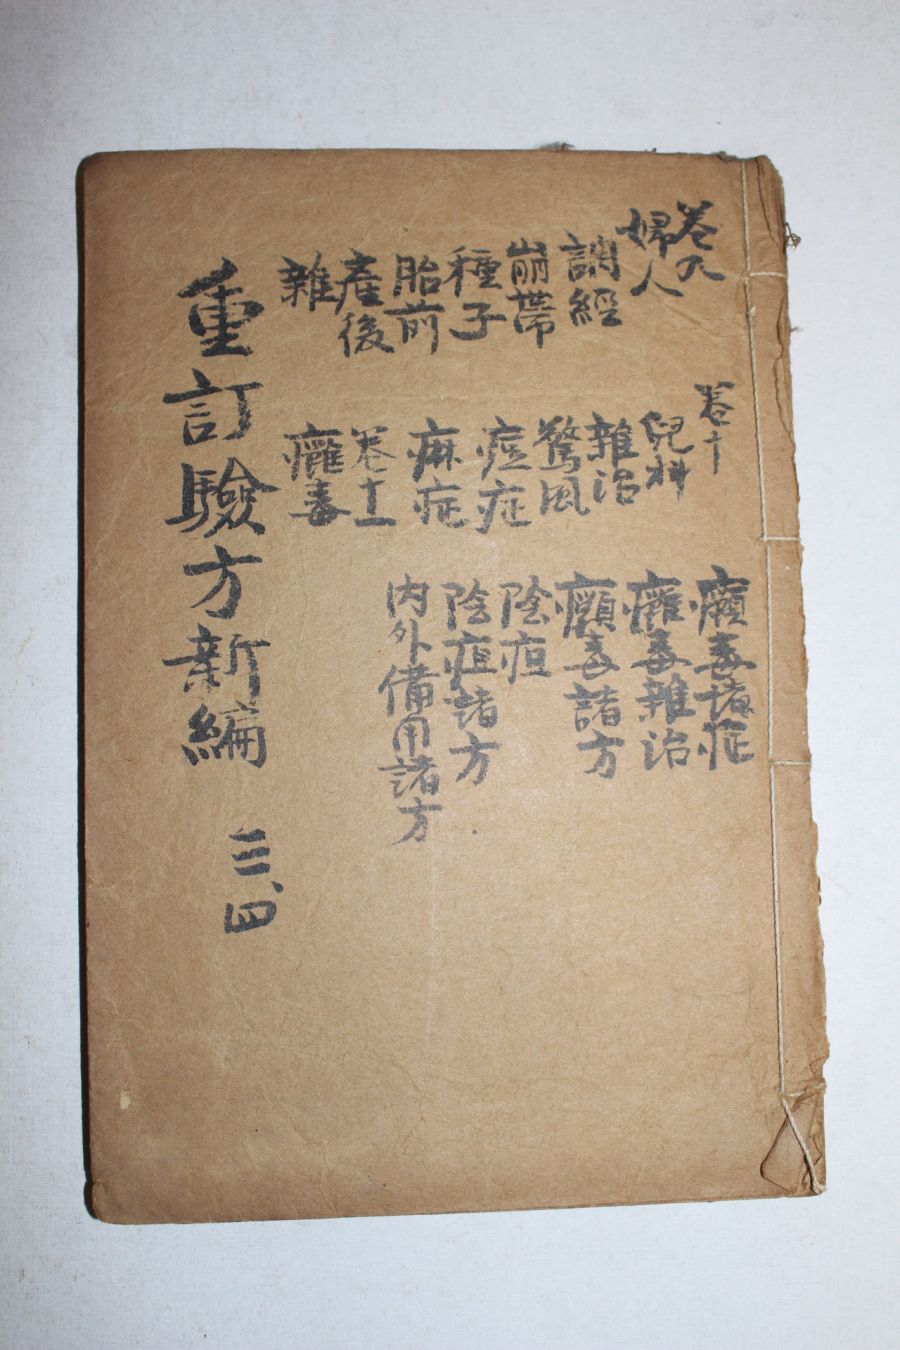 卷九
婦人
調經
崩帶
種子
胎前
產後
雜
卷十
兒科
雜治
驚風
痘症
麻症
卷十一
癰毒
癰毒諸症
癰毒雜治
癰毒諸方
陰疽
陰疽諸方
内外備用諸方
重訂驗方新編 三、四